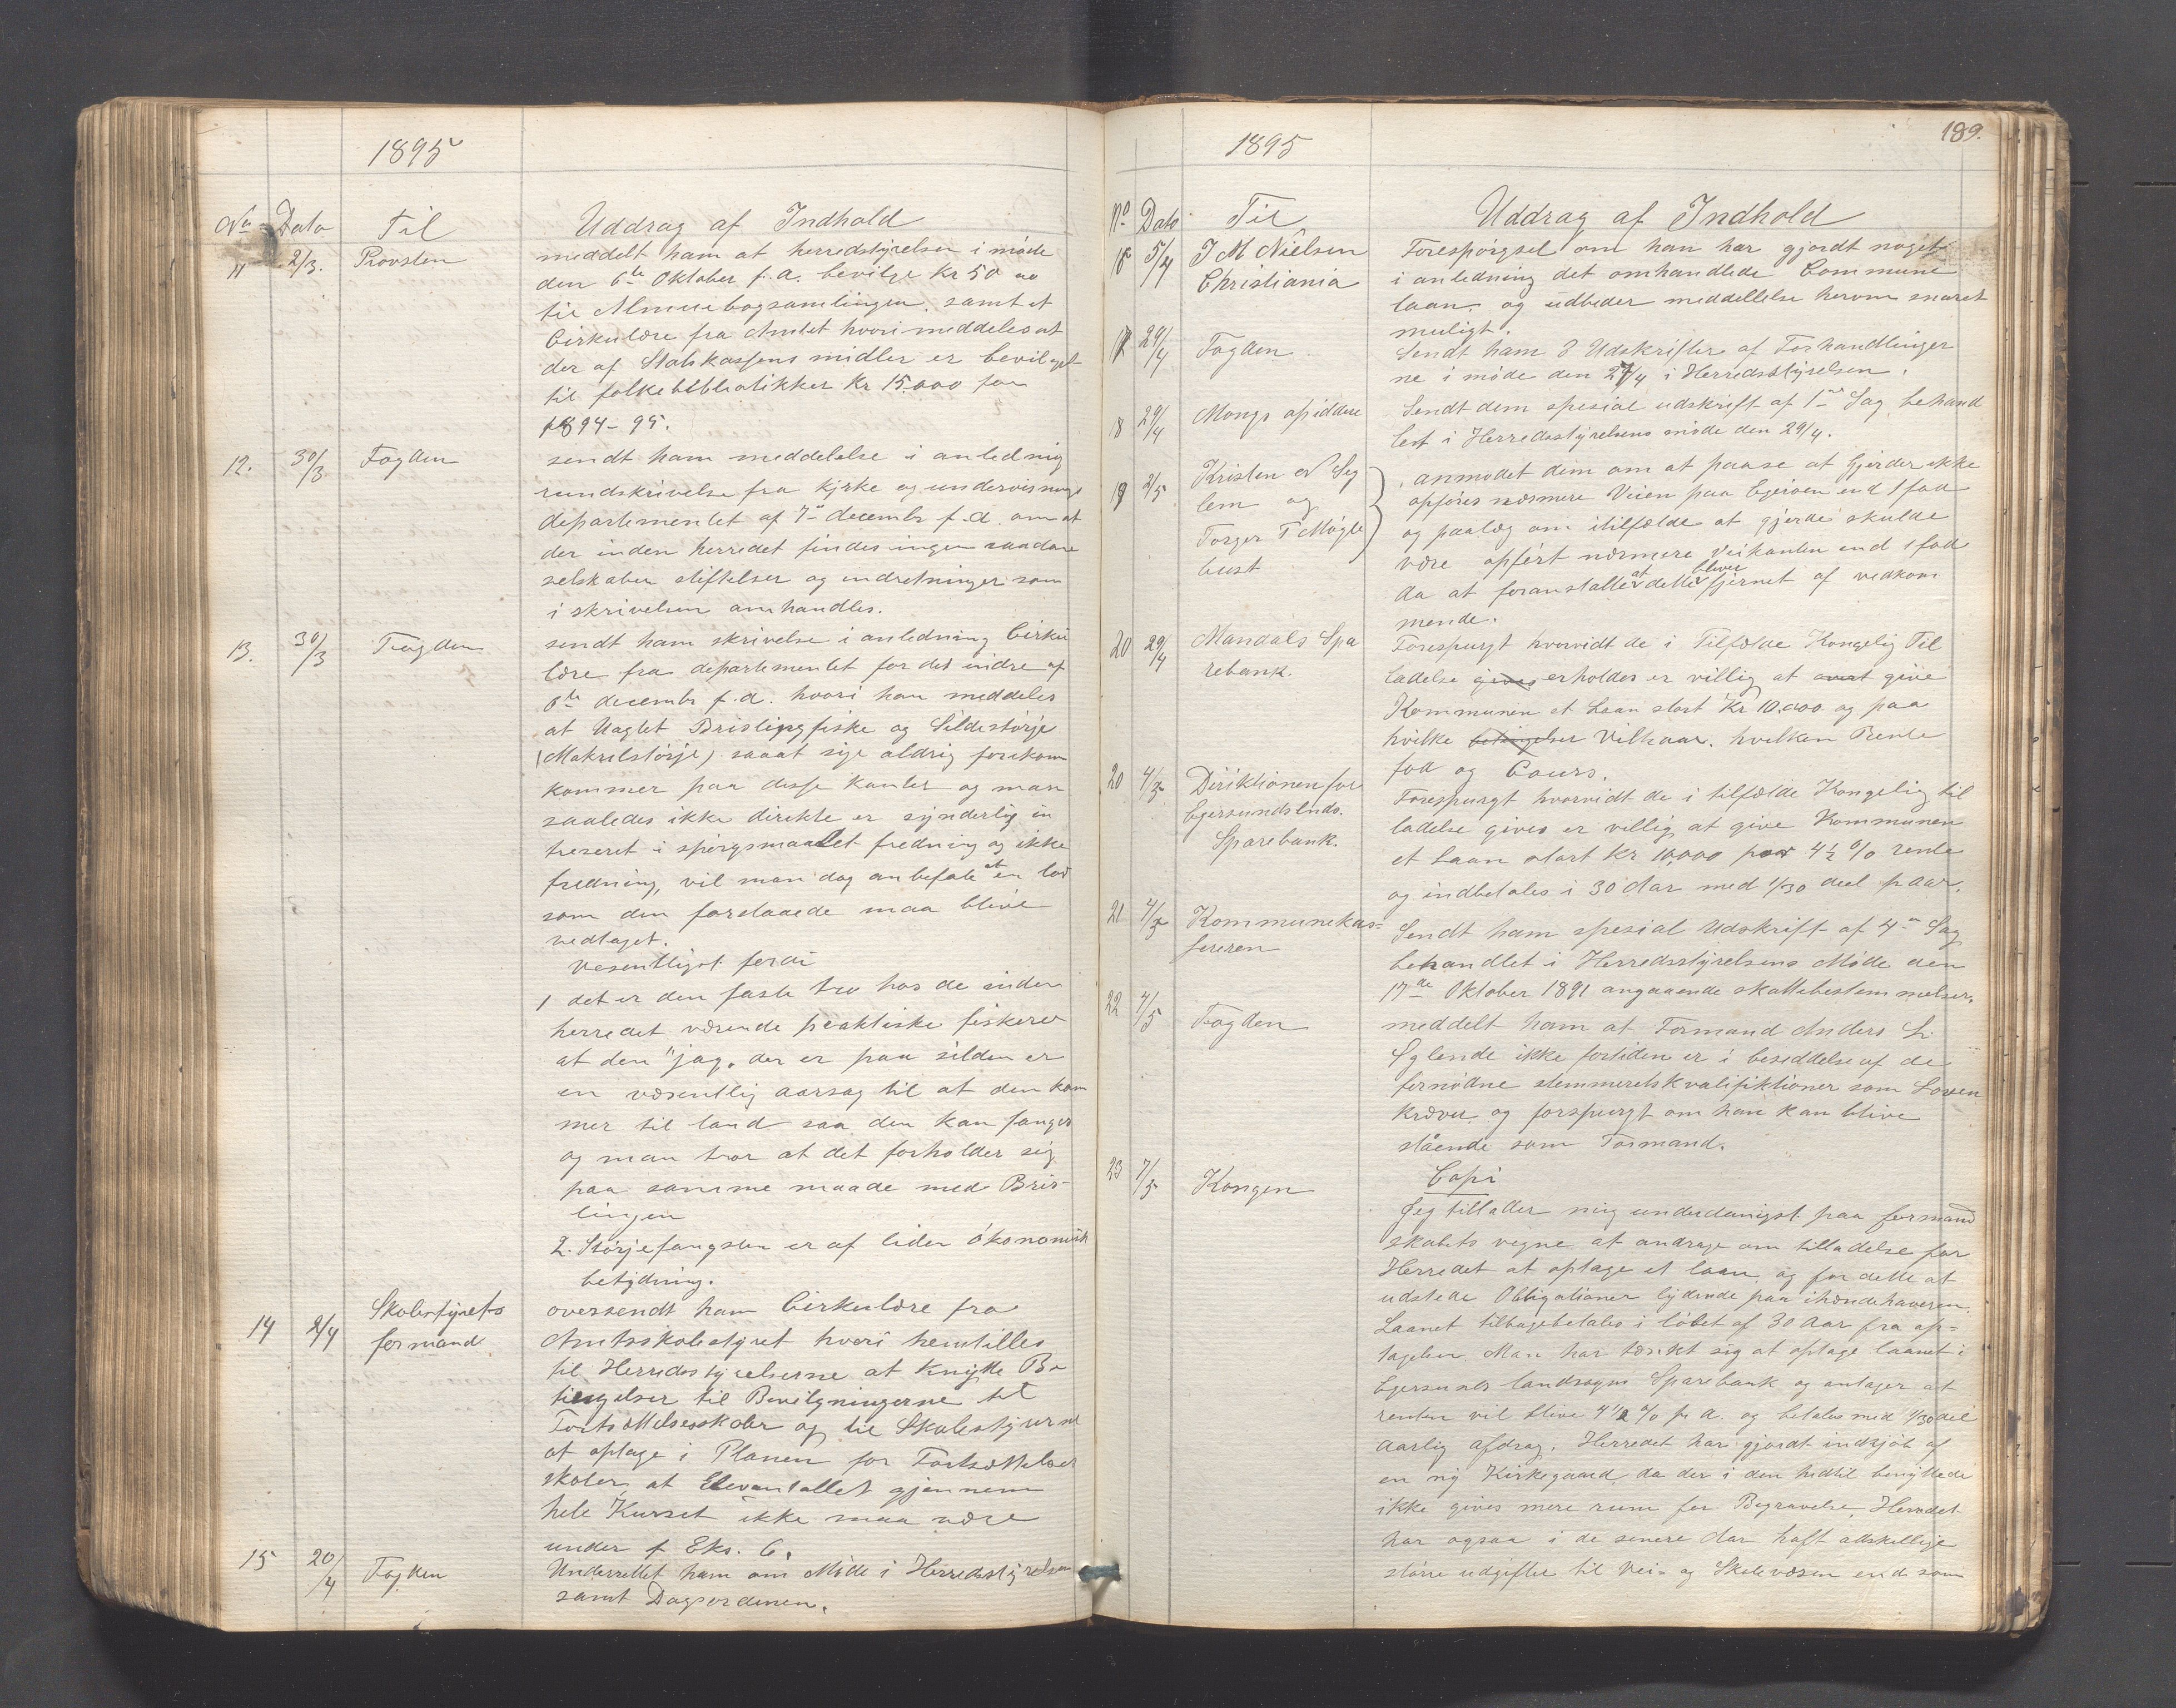 1895
No Dato Til Uddrag af Indhold
11 2/3. Provsten meddelt ham at herredstyrelsen i møde
den 6te Oktober f.a. bevilge Kr 50 00
til Almuebogsamlingen samt et
Cirkulære fra Amtet hvori meddeles at
der af Statskassens midler er bevilget
til folkebiblioteker Kr 15.000 for
1894-95.
12. 30/3 Fogden sendt ham meddelelse i anledning
rundskrivelse fra kjrke og undervisnings
departementet af 7de decembr f.a. om at
der inden herredet findes ingen saadane
selskaber stiftelser og indretninger som
i skrivelsen omhandles.
13. 30/3 Fogden sendt ham skrivelse i anledning Cirku
lære fra departementet for det indre af
6te decembr f.a. hvori han meddeles
at Vaglet Brislingfiske og Sildestørje
(Makrelstørje) saaat sige aldrig forekom
kommer paa disse kanter og man
saaledes ikke direkte er synderlig in
treseret i spørgsmaalet fredning og ikke
fredning, vil man dog anbefale at en lov
som den foreslaaede maa blive
vedtaget.
Vesentligst fordi
1 det er den faste tro hos de inden
herredet værende praktiske fiskere
at den "jag" der er paa silden er
en væsentlig aarsag til at den kom
mer til land saa den kan fanges
og man tror at det forholder sig
paa samme maade med Bris-
lingen
2. Størjefangsten er af liden økonomisk
betydning.
14 2/4 Skolestyrets formand oversendt ham Cirkulære fra
Amtsskolestyret hvori henstilles
til Herredsstyrelserne at knytte Be
tingelser til Bevilgningerne til
Fortsættelsesskoler og til Skolestyrerne
at optage i Planen for Fortsættelses
skoler at Elevantallet gjennem
hele Kurset ikke maa være
under f Eks. 6.
15 20/4 Fogden Underrettet ham om Møde i Herredsstyrelsen
samt Dagsordenen.
189.
1895
No Dato Til Uddrag af Indhold
16 5/4 J M Nielsen Forespørgsel om han har gjordt noget
Christiania i anledning det omhandlede Commune
laan og udbeder meddellelse herom snarest
muligt.
17 29/4 Fogden Sendt ham 3 Udskrifter af Forhandlinger
ne i møde den 27/4 i Herredsstyrelsen.
18 29/4 Mong Sendt dem spesial udskrift af 1ste Sag behand
let i Herredsstyrelsens møde den 29/4.
19 2/5 Kristen N Seg anmodet dem om at paase at Gjerder ikke
lem og opføres nærmere Veien paa Egerøen end 1 fod
Torger T Møgle og paalæg om itilfælde at gjerde skulde
bust være opført nærmere Veikanten end 1 fod
da at foranstalte at dette bliver fjernet af vedkom
mende.
20 29/4 Mandals Spa Forespurgt hvorvidt de i Tilfælde Kongelig Til
rebank. ladelse gives erholdes er villig at give
Kommunen et Laan stort Kr 10.000 og paa
hvilke betingelser Vilkaar. hvilken Rente
fod og Cours.
20 4/5 Direktionen for Forespurgt hvorvidt de i tilfælde Kongelig til
Egersunds Lnds. ladelse gives er villig at give Kommunen
Sparebank. et Laan stort Kr 10.000 paa 4½ % rente
og indbetales i 30 Aar med 1/30 deel p Aar.
21 4/5 Kommunekas= Sendt ham spesial Udskrift af 4de Sag
sereren behandlet i Herredsstyrelsens Møde den
17de Oktober 1891 angaaende skattebestemmelser.
22 4/5 Fogden meddelt ham at Formand Anders L.
Eglende ikke fortiden er i besiddelse af de
fornødne stemmeretskvalifiktioner som Loven
kræver og forspurgt om han kan blive
stående som Formand.
23 7/5 Kongen Copi
Jeg tillader mig underdanigst paa formand
skabets vegne at andrage om tilladelse for
Herredet at optage et laan og for dette at
udstede Obligationer lydende paa ihændehaveren.
Laanet tilbagebetales i løbet af 30 Aar fra op=
tagelsen. Man har tænkt sig at optage laanet i
Egersunds landsogns Sparebank og antager at
renten vil blive 4½ % pr a. og betales med 1/30 del
aarlig afdrag. Herredet har gjordt indkjøb af
en ny Kirkegaard da der i den hidtil benyttede
ikke gives mere rum for Begravelse, Herredet
har ogsaa i de senere Aar haft adskillige
større udgifter til Vei- og Skolevæsen end som